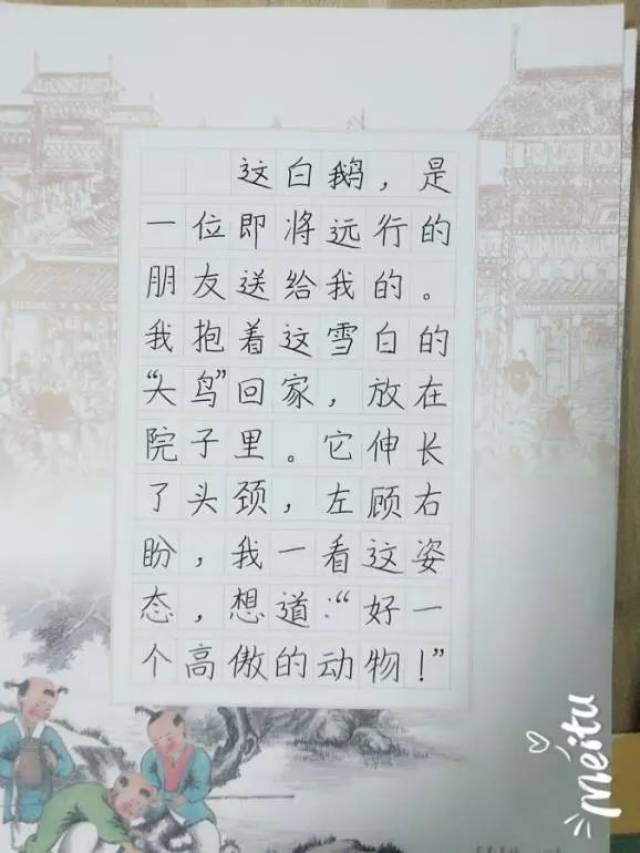 这白鹅，是
一位即将远行的
朋友送给我的。
我抱着这雪白的
“大鸟”回家，放在
院子里。它伸长
了头颈，左顾右
盼，我一看这姿
态，想道：“好一
个高傲的动物！”
meitu